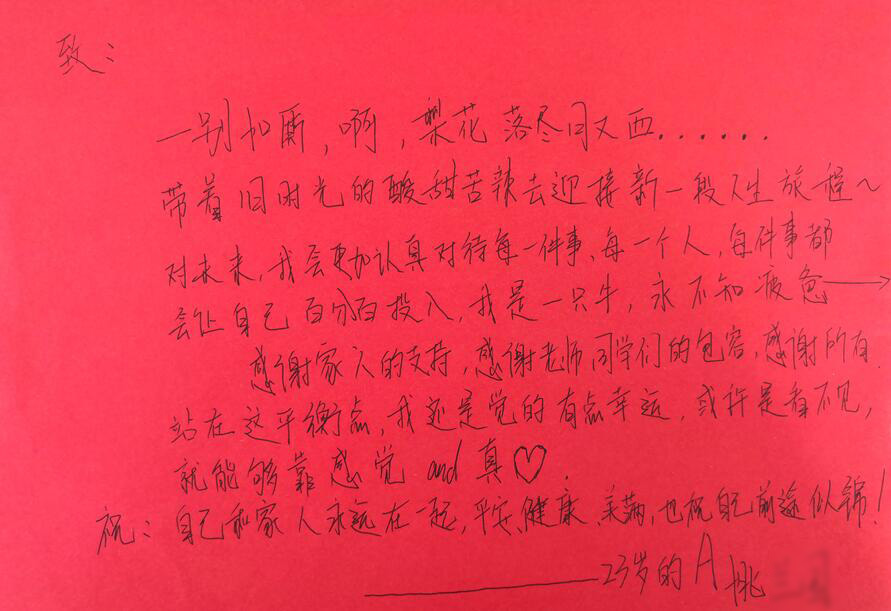 致：
一别如雨，啊，梨花落尽月又西......
带着旧时光的酸甜苦辣去迎接新一段人生旅程～
对未来，我会更加认真对待每一件事、每一个人，每件事都
会让自己百分百投入，我是一只牛，永不知疲惫→
感谢家人的支持，感谢老师同学们的包容，感谢所有.
站在这平衡点，我还是觉的有点幸运，或许是看不见，
就能够靠感觉 and 真♡.
祝：自己和家人永远在一起，平安、健康、美满，也祝自己前途似锦！
——23岁的A挑